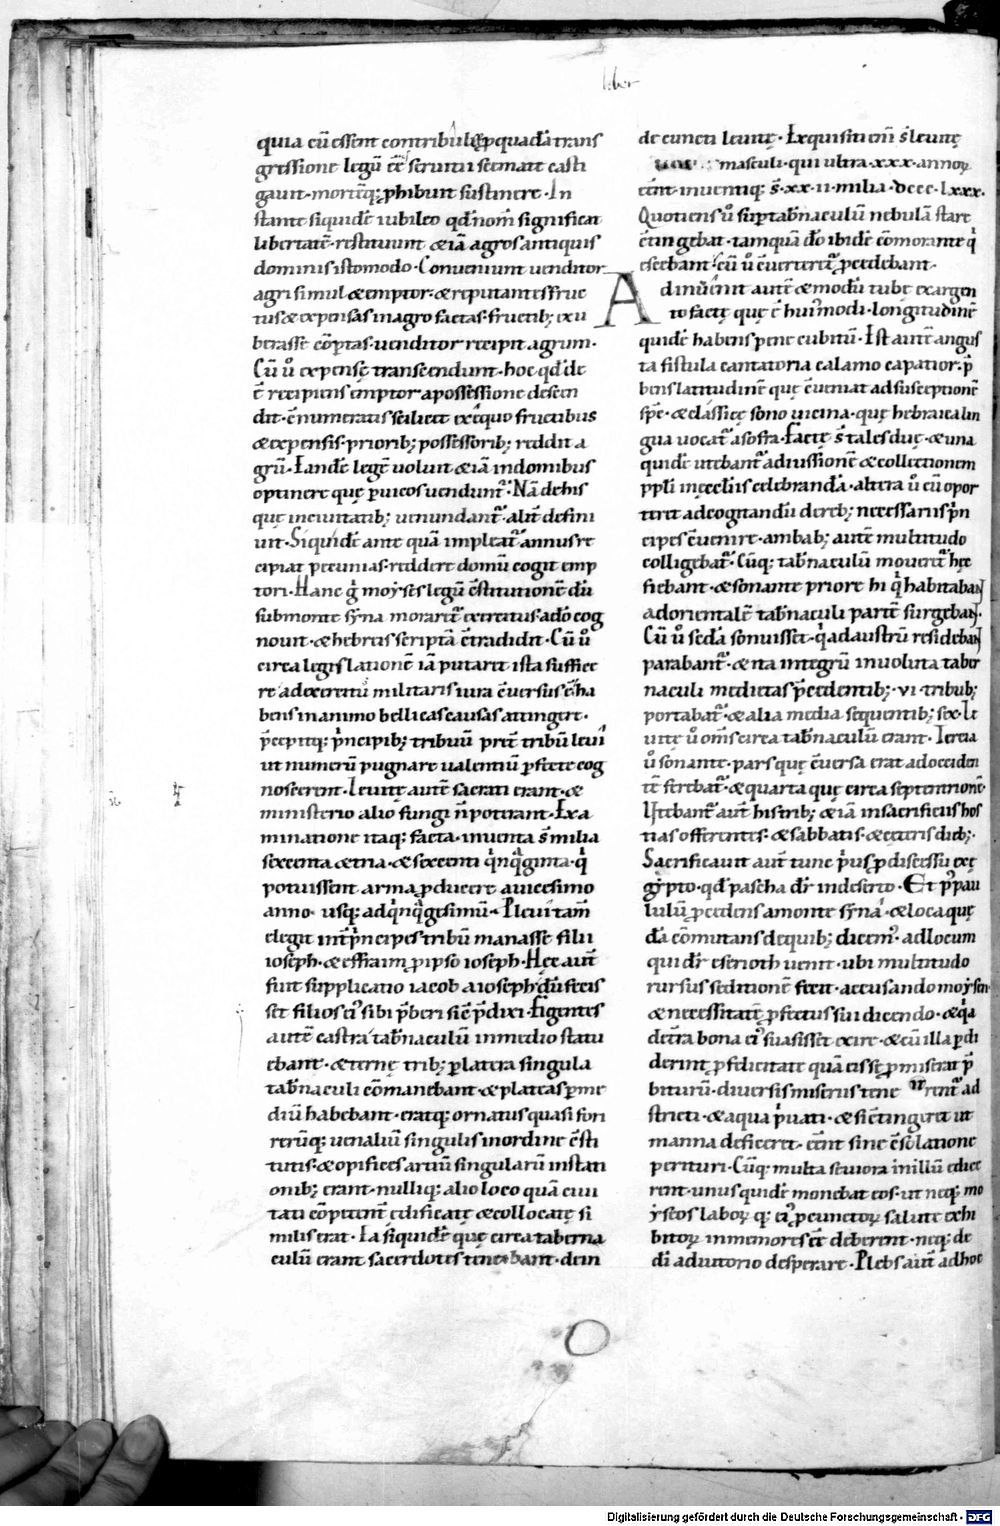 liber
quia cū essent contribulęs p quadā trans
gressione legū ēē seruitii secmate casti
gauit· mortēq; phibuit sustinere· In
stante siquidē iubileo qđ nom̄ significat
libertatē· restituunt & iā agros antiquis
dominis isto modo· Conueniunt uenditor
agri simul & emptor· & reputantes fruc
tus & expensas in agro factas· fructib; exu
berasse cōptas· uenditor recipit agrum·
Cū ů expensę transcendunt· hoc qđ de
ē recipiens emptor a possessione descen
dit· c̄numeratis scilicet ex ęquo fructibus
& expensis· priorib; possessorib; reddit a
grū· Eandē legē uoluit & iā in domibus
optinere quę p uicos uendunt̄· Nā de his
quę in ciuitatib; uenundant̄· alit̄ defini
uit· Siquidē ante quā impleat̄ annus re
cipiat pecunias· reddere domū cogit emp
tori· Hanc g̊ moẏses legū c̄stitutionē dū
sub monte sẏna moraret̄ exercitus· a dō cog
nouit· & hebreis scriptā c̄tradidit· Cū ů
circa legislationē iā putaret ista suffice
re ad decretū militaris iura c̄uersus c̄ha
bens in animo bellicas causas attingere·
p̄cepitq; p̄ncipib; tribuū prȩt̄ tribū leui
ut numerū pugnare ualentiū pfecte cog
noscerent· Leuitę autē sacrati erant· &
ministerio alio fungi n̄ poterant· Exa
minatione itaq; facta· inuenta s̄ milia
sexcenta & tria· & sexcenti q̇nq̇ginta· q̇
potuissent arma pducere a uicesimo
anno· usq; ad q̇nq̇gesimū· P leui tam̄
elegit int̄ p̄ncipes tribū manasse filii
ioseph· & effraim p ipso ioseph· Hęc aut̄
fuit supplicatio iacob a ioseph dū fecis
set filios ei᾽ sibi p̄beri sic̄ p̄dixi· Figentes
autē castra tab̄naculū in medio statu
ebant· & ternę trib; p latera singula
tab̄naculi cōmanebant· & plateas p me
diū habebant· eratq; ornatus quasi fori
rerūq; uenaliū singulis in ordine c̄sti
tutis· & opifices artiū singularū in stati
onib; erant· nulliq; alio loco quā ciui
tati cōpetent̄ edificatę & collocatę si
milis erat· Ea siquidē quę circa taberna
culū erant sacerdotes tenebant· dein
de cuncti leuitę· Exquisiti eni̅ s̄ leuitę
masculi· qui ultra· xxx· annoꝝ
eēnt inuentiq; s̄· xx· ii· milia· dccc· lxxx·
Quotiens ů sup tab̄naculū nebulā stare
c̄tingebat· tamquā dō ibidē cōmorante q̇
escebant· cū ů c̄uerteret̄ pcedebant·
Adinuenit autē & modū tubę ex argen
to factę quę ē hui᾽modi· longitudinē
quidē habens pene cubitū· Est autē angus
ta fistula cantatoria calamo capatior· p̄
bens latitudinē quę c̄ueniat ad susceptionē
sp̄c· & classicę sono uicina· quę hebraica lin
gua uocat̄ asosra· Factę s̄ tales duę· & una
quidē utebant̄ ad iussionē & collectionem
ppli in ęccliis celebrandā· altera ů cū opor
teret ad cogitandū de reb; necessariis p̄n
cipes c̄uenire· ambab; autē multitudo
colligebat̄· Cūq; tab̄naculū moueret̄ hęc
fiebant· & sonante priore hi q̇ habitabant
ad orientalē tab̄naculi partē surgebant·
Cū ů sedā sonuisset· q̇ ad austrū residebant
parabant̄· & ita integrū inuoluta taber
naculi medietas p̄cedentib;· vi· tribub;
portabat̄· & alia media sequentib; sex· Le
uitę ů om̄s circa tab̄naculū erant· Tercia
ů sonante· pars quę c̄uersa erat ad occiden
tē ferebat̄· & quarta quę circa septentrionē·
Utebant̄ aut̄ his trib; & iā in sacrificiis hos
tias offerentes· & sabbatis· & cęteris dieb;·
Sacrificauit aut̄ tunc p̓us p discessu ex ę
gẏpto· qđ pascha dr̄ in deserto· Et p᾽ pau
lulū pcedens a monte sẏna· & loca quę
dā cōmutans de quib; dicem᾽· ad locum
qui dr̄ eserioth uenit· ubi multitudo
rursus seditionē fecit· accusando moẏsen·
& necessitatē pfectus sui dicendo· & q̇a
de tr̄a bona ei᾽ suasisset exire· & cū illa pdi
derint p fedicitate quā eis sȩ pmiserat p̄
biturū· diuersis miseriis tenerent̄ ad
stricti· & aqua p̓uati· & si c̄tingeret ut
manna deficeret· eēnt sine c̄solatione
perituri· Cūq; multa seuiora in illū edice
rent· unus quidē monebat eos· ut neq; mo
ẏseos laboꝝ q; ei᾽ p cunctoꝝ salute exhi
bitoꝝ inmemores eē deberent· neq; de
dī adiutorio desperare· Plebs aut̄ ad hoc
Digitalisierung gefördert durch die Deutsche Forschungsgemeinschaft - DFG